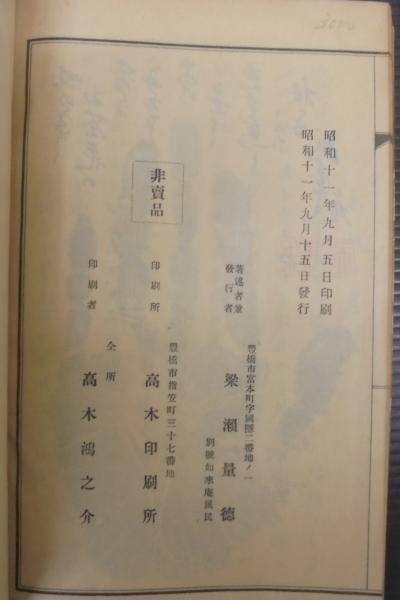 昭和十一年九月五日印刷
昭和十一年九月十五日發行
豊橋市富本町字國隱二番地ノ一
著述者兼
發行者
梁瀬量德
別號如來庵凤民
豊橋市指笠町三十七番地
印刷所
高木印刷所
非賣品
仝所
印刷者
高木鴻之介